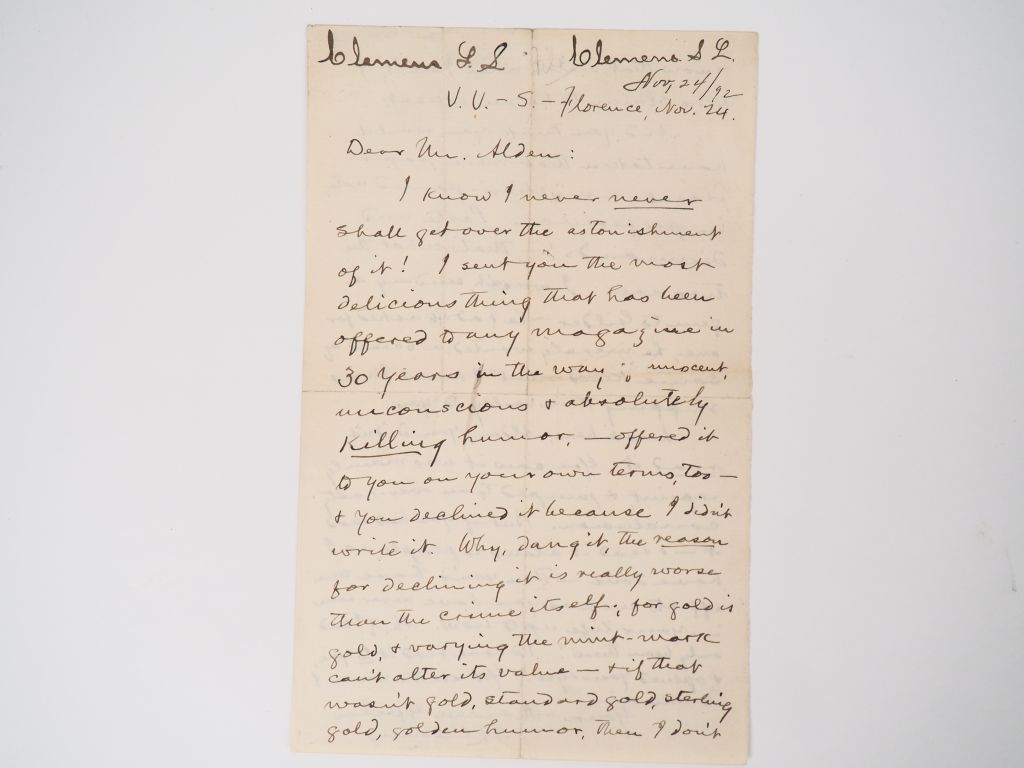 Clemens L. S. Clemens. S L.
Nov. 24/92
V. V. - S. - Florence, Nov. 24.
Dear Mr. Alden:
I know I never never
shall get over the astonishment
of it! I sent you the most
delicious thing that has been
offered to any magazine in
30 years in the way of innocent,
unconscious & absolutely
killing humor, — offered it
to you on your own terms, too —
& you declined it because I didn't
write it. Why, dang it, the reason
for declining it is really worse
than the crime itself; for gold is
gold, & varying the mint-mark
can't alter its value — & if that
wasn't gold, standard gold, sterling
gold, golden humor, then I don't